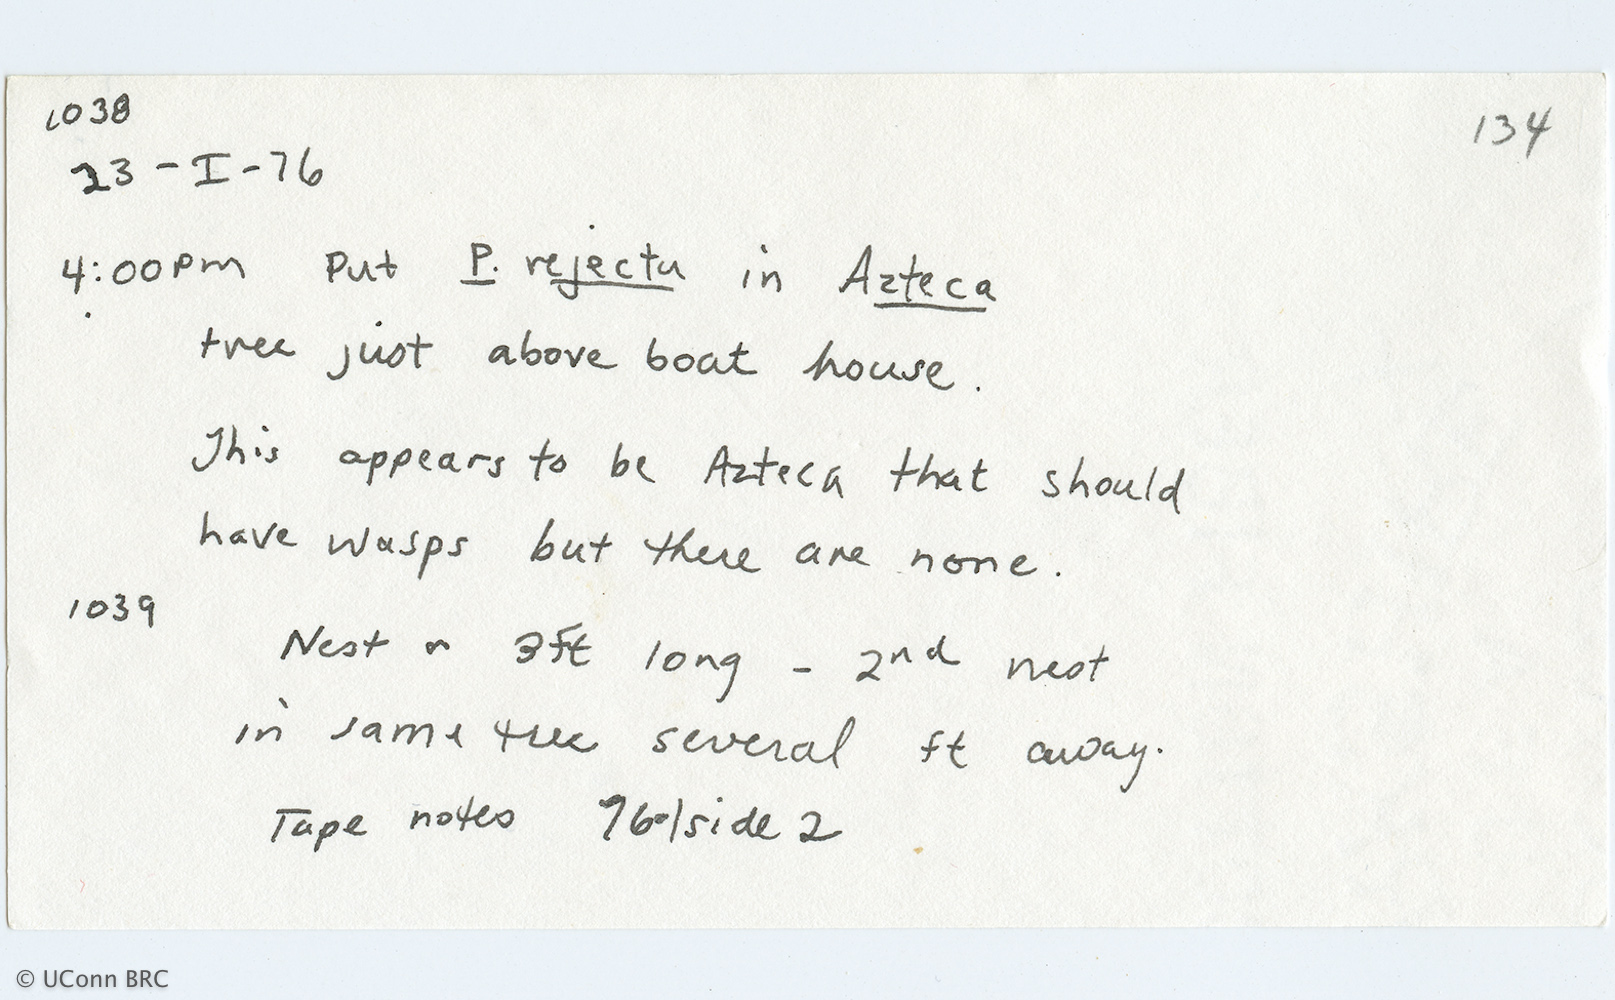 1038
134
23-I-76
4:00pm Put P. rejecta in Azteca
tree just above boat house.
This appears to be Azteca that should
have wasps but there are none.
1039
Nest ~ 3ft long - 2nd nest
in same tree several ft away.
Tape notes side 2
© UConn BRC